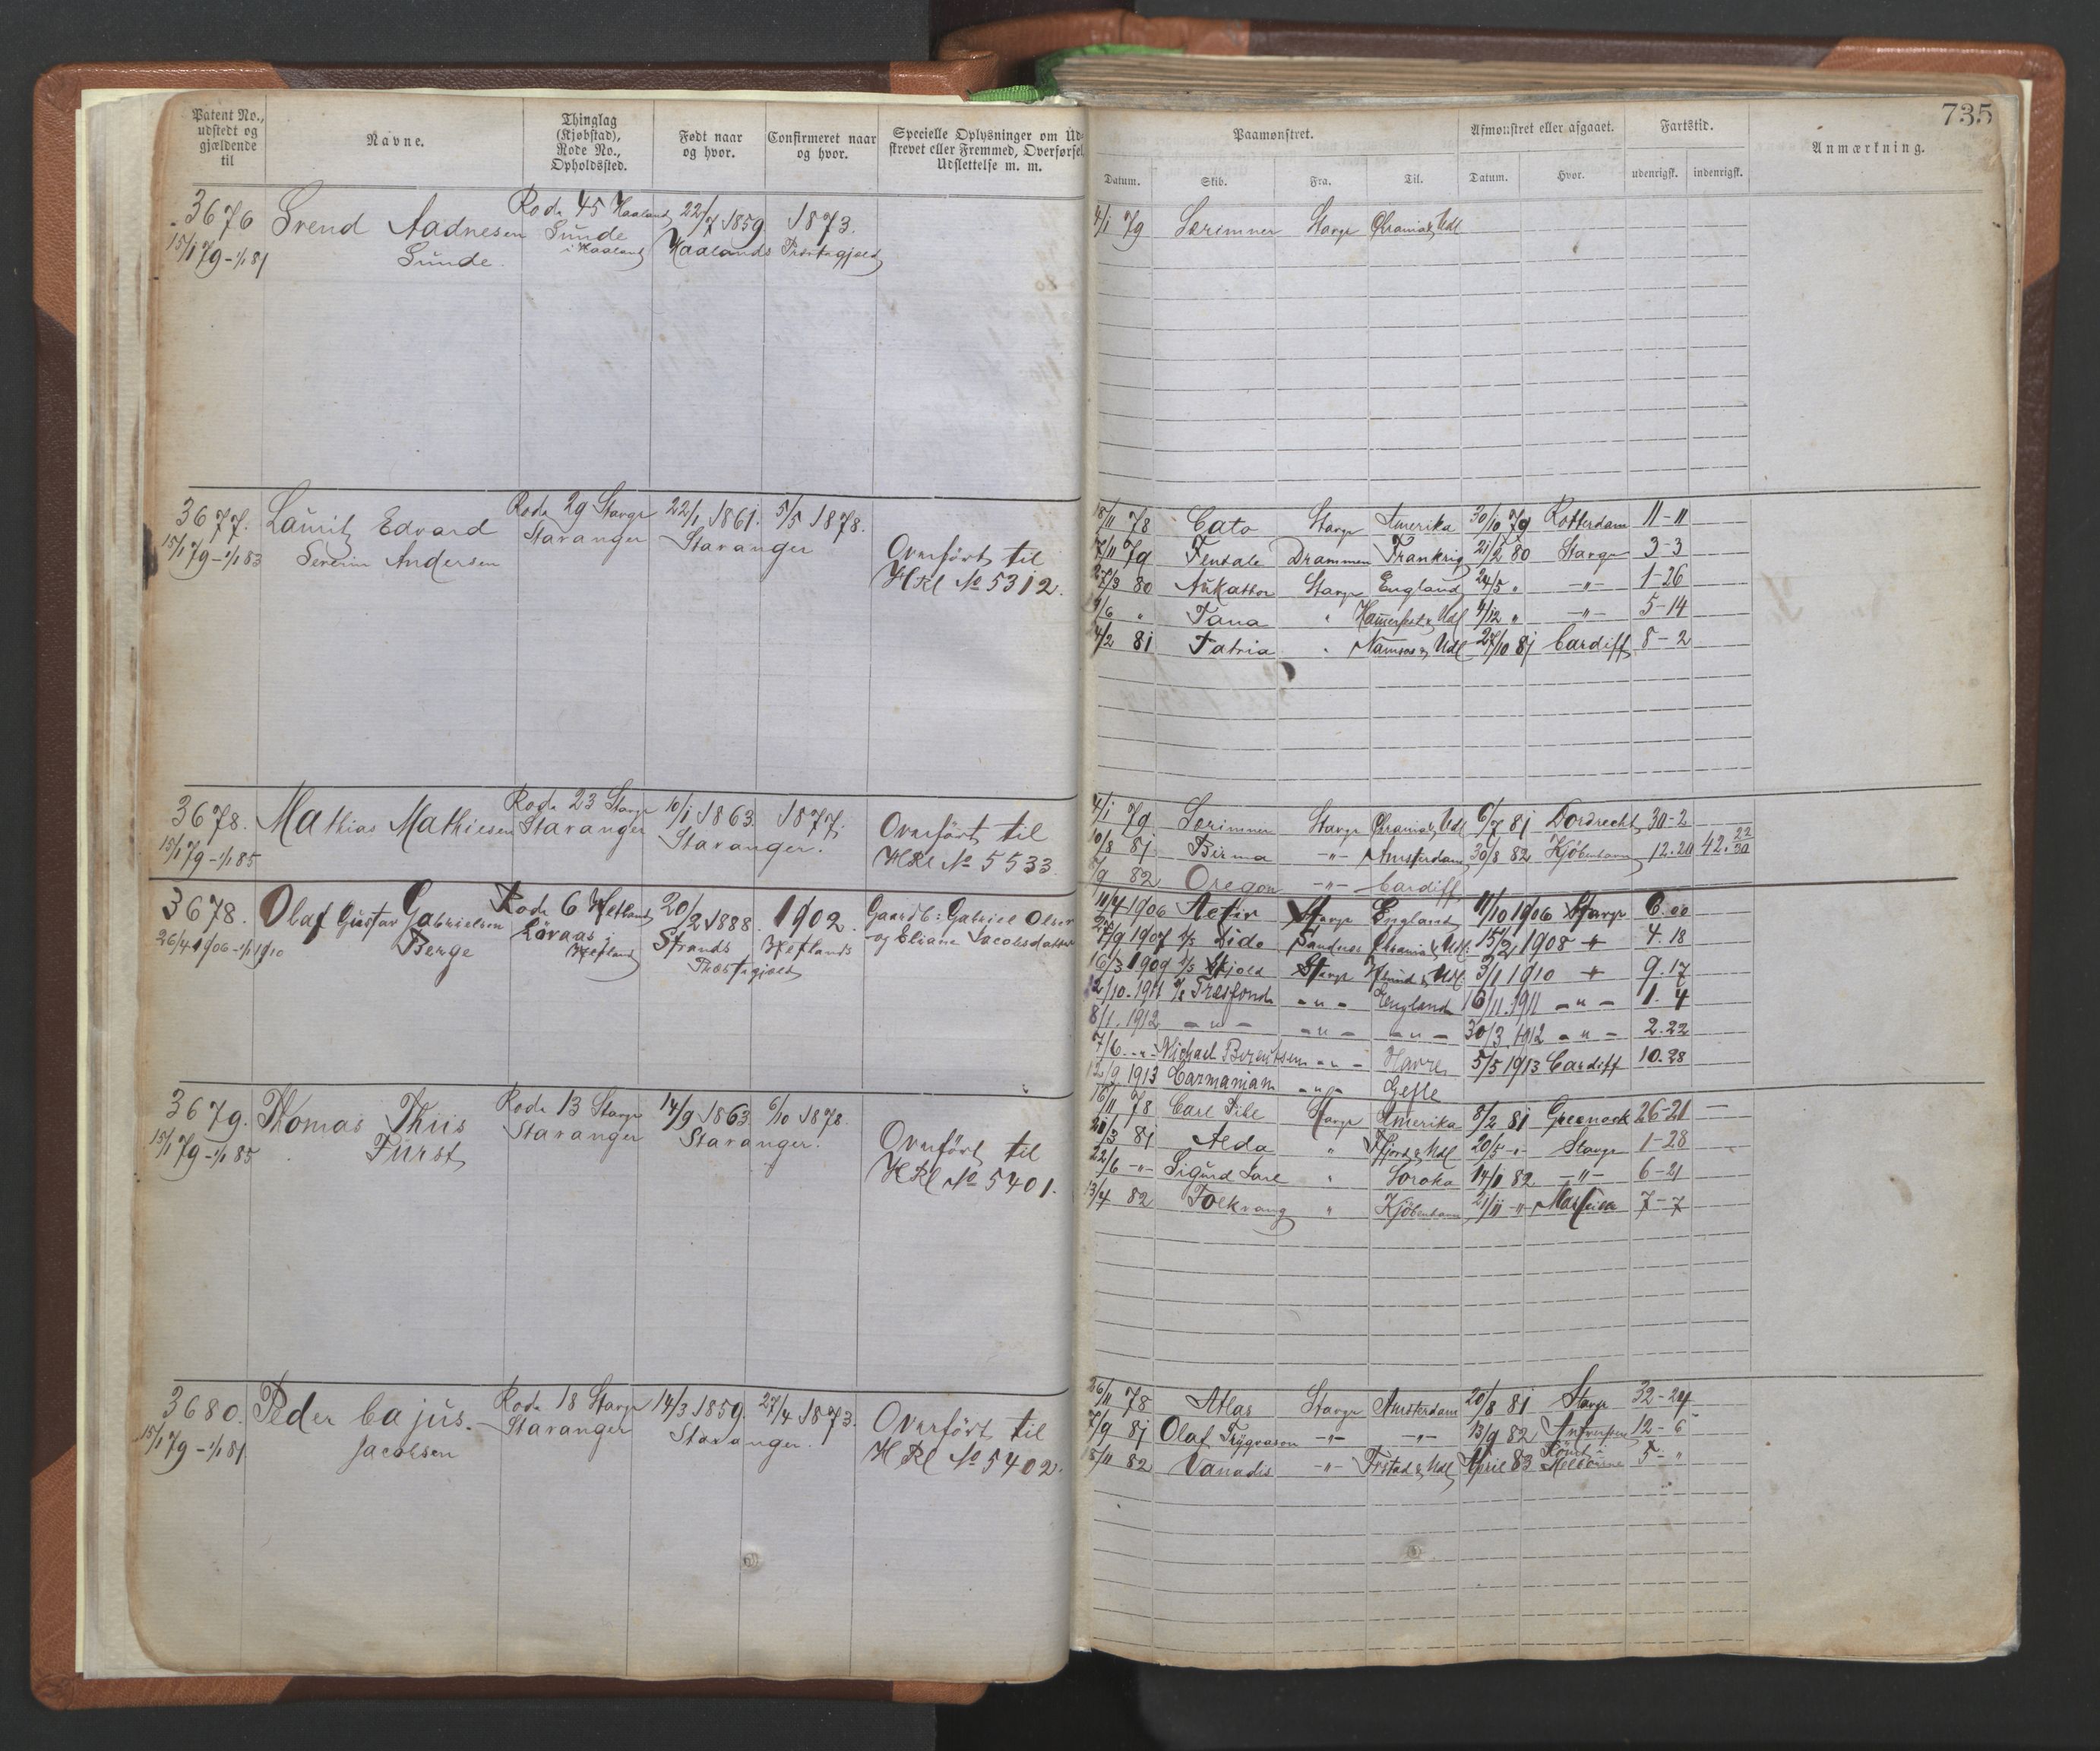 735
Patent No., udstedt og gjældende til
Navne.
Thinglag (Kjøbstad), Rode No., Opholdssted.
Født naar og hvor.
Confirmeret naar og hvor.
Specielle Oplysninger om Ud-
strevet eller Fremmed, Overførsel,
Udslettelse m. m.
Paamønstret.
Afmønstret eller afgaaet.
Fartstid.
Anmærkning.
Datum. Skib. Fra. Til. Datum. Hvor. udenrigsk. indenrigsk.
3676 Svend Aadnesen Rode 45 Haaland 22/7 1859 1873.
15/1 79 - 1/1 81 Sunde Sunde i Haaland Haalands Præstegjæld
4/1 79 Særimner Stavgr Chrania & Udl
3677. Lauritz Edvard Rode 29 Stavgr 22/1 1861. 5/5 1878.
15/1 79 - 1/1 83 Severin Andersen Stavanger Stavanger
Overført til
HRl No 5312.
18/11 78 Cato Stavgr Amerika 30/10 79 Rotterdam 11-11
7/11 79 Drammen Frankrig 21/2 80 Stavgr 3-3
27/3 80 Stavgr England 24/5 " -"- 1-26
9/6 " Tana " Hammerfest & Udl 4/12 " -"- 5-14
4/2 81 Patria " Namsos & Udl 27/10 81 Cardiff 8-2
3678. Mathias Mathiesen Rode 23 Stavgr 10/1 1863 1877.
15/1 79 - 1/1 85 Stavanger Stavanger.
Overført til
HRl No 5533
4/1 79 Særimner Stavgr Chrania & Udl 6/7 81 Dordrecht 30-2
10/8 81 Birma -"- Amsterdam 30/8 82 Kjøbenhavn 12.20 42. 22/30
7/9 82 Oregon -"- Cardiff
3678. Olaf Gustav Gabrielsen Rode 6 Hetland 20/2 1888. 1902.
26/4 1906 - 1/1 1910 Berge Løvaas i Hetland Strands Præstegjæld Hetlands
Gaardb: Gabriel Olsen
og Eliane Jacobsdatter
11/4 1906 Stavgr England 11/10 1906 Stavgr 6.00
27/9 1907 Lide Sandnes Chrania & Udl. 15/2 1908 -"- 4.18
16/3 1909 Skjold Stavgr & Udl. 3/1 1910 -"- 9.17
12/10.1911 -"- England 16/11.1911 -"- 1.4
8/1.1912 -"- -"- -"- 30/3.1912 -"- 2.22
7/6.-"- Michael Berentsen -"- Havre 5/5 1913 Cardiff 10.28
12/9 1913 Carmanian -"- Gefle
3679. Thomas Thiis Rode 13 Stavgr 14/9 1863 6/10 1878.
15/1 79 - 1/1 85 Fürst Stavanger Stavanger.
Overført til
HRl No 5401.
16/11 78 Carl Pihl Stavgr Amerika 8/2 81 Greenock 26-21
21/3 81 Alda " Fjord & Udl 20/5 -"- Stavgr 1-28
22/6 -"- Sigurd Jarl " Soroka 14/1 82 -"- 6-21
13/4 82 Folkvang " Kjøbenhavn 21/11 -"- 7-7
3680. Peder Cajus Rode 18 Stavgr 14/3 1859. 27/4 1873.
15/1 79 - 1/1 81 Jacobsen Stavanger Stavanger.
Overført til
HRl No 5402.
26/11 78 Atlas Stavgr Amsterdam 20/8 81 Stavgr 32-24
7/9 81 Olaf Trygvason -"- -"- 13/9 82 Antwerpen 12-6
15/11 82 Vanadis -"- Frstad & Udl April 83 Rømt Melbourne 5-"